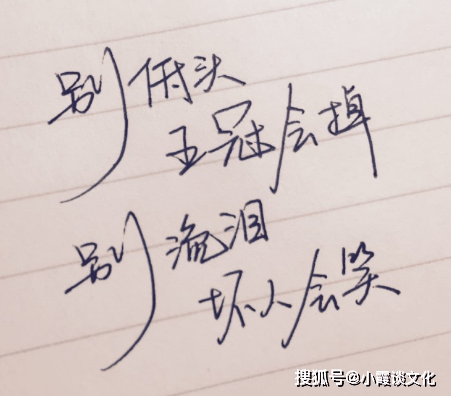 别低头
王冠会掉
别流泪
坏人会笑
搜狐号@小霞谈文化